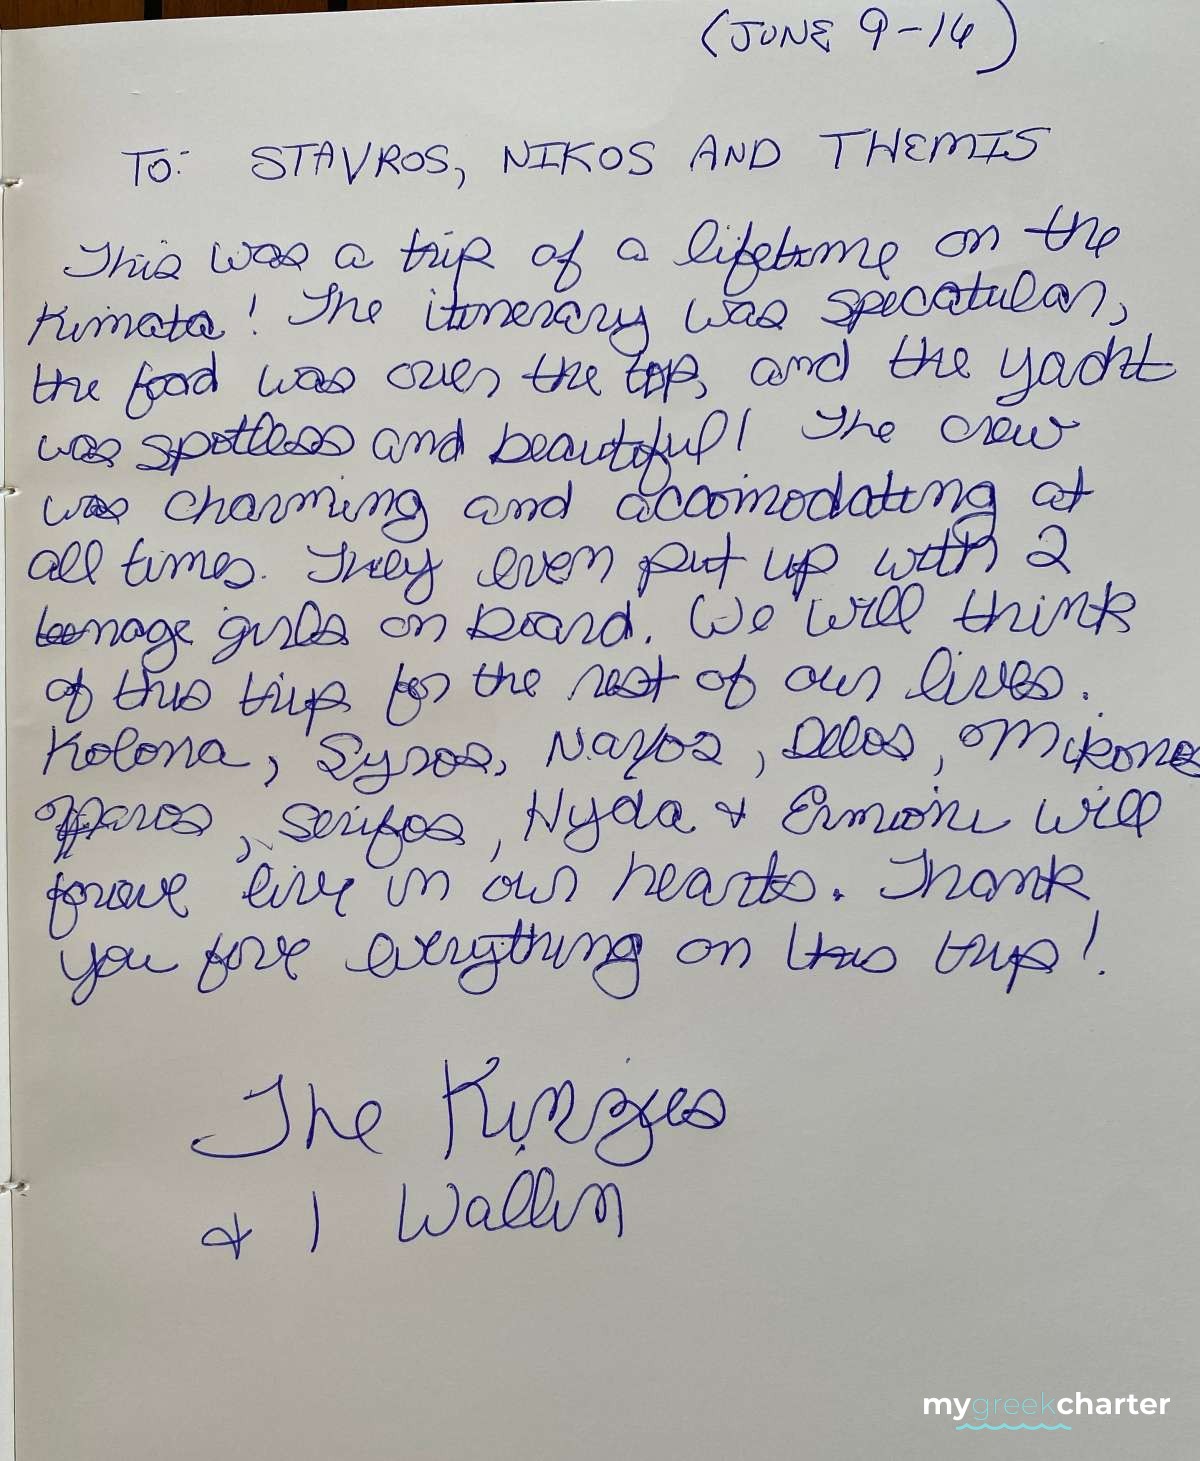 (JUNE 9-14)
TO: STAVROS, NIKOS AND THEMIS
This was a trip of a lifetime on the
Kimata! The itinerary was specatular,
the food was over the top, and the yacht
was spotless and beautiful! The crew
was charming and accomodating at
all times. They even put up with 2
teenage girls on board. We will think
of this trip for the rest of our lives.
Kolona, Syros, Naxos, Delos, Mikonos
Paros, Serifos, Hyda & Ermioni will
forove live in our hearts. Thank
you fore everything on this trip!
The Kinzies
& 1 Wallin
mygreekcharter